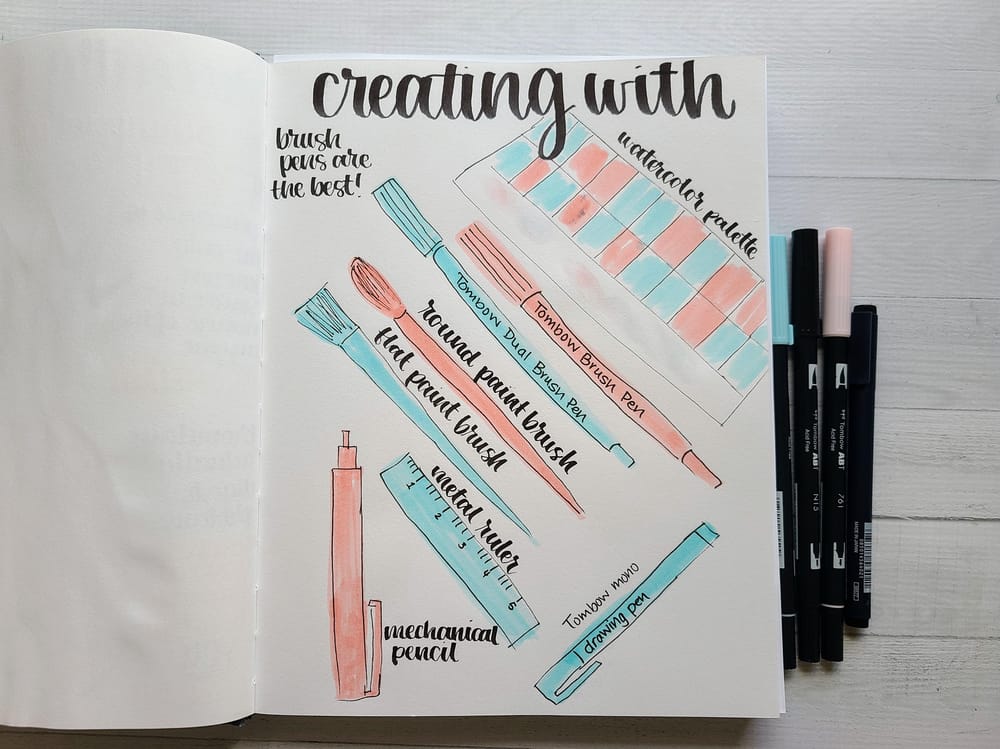 creating with
brush
pens are
the best!
watercolor palette
Tombow Dual Brush Pen
Tombow Brush Pen
round paint brush
flat paint brush
metal ruler
1
2
3
4
5
mechanical
pencil
Tombow mono
drawing pen
Tombow ABT
Acid Free
N15
Tombow ABT
Acid Free
761
MADE IN JAPAN